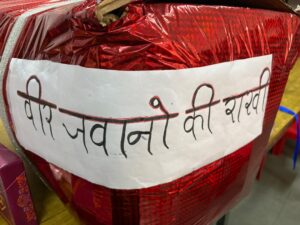 वीर जवानो की राखी